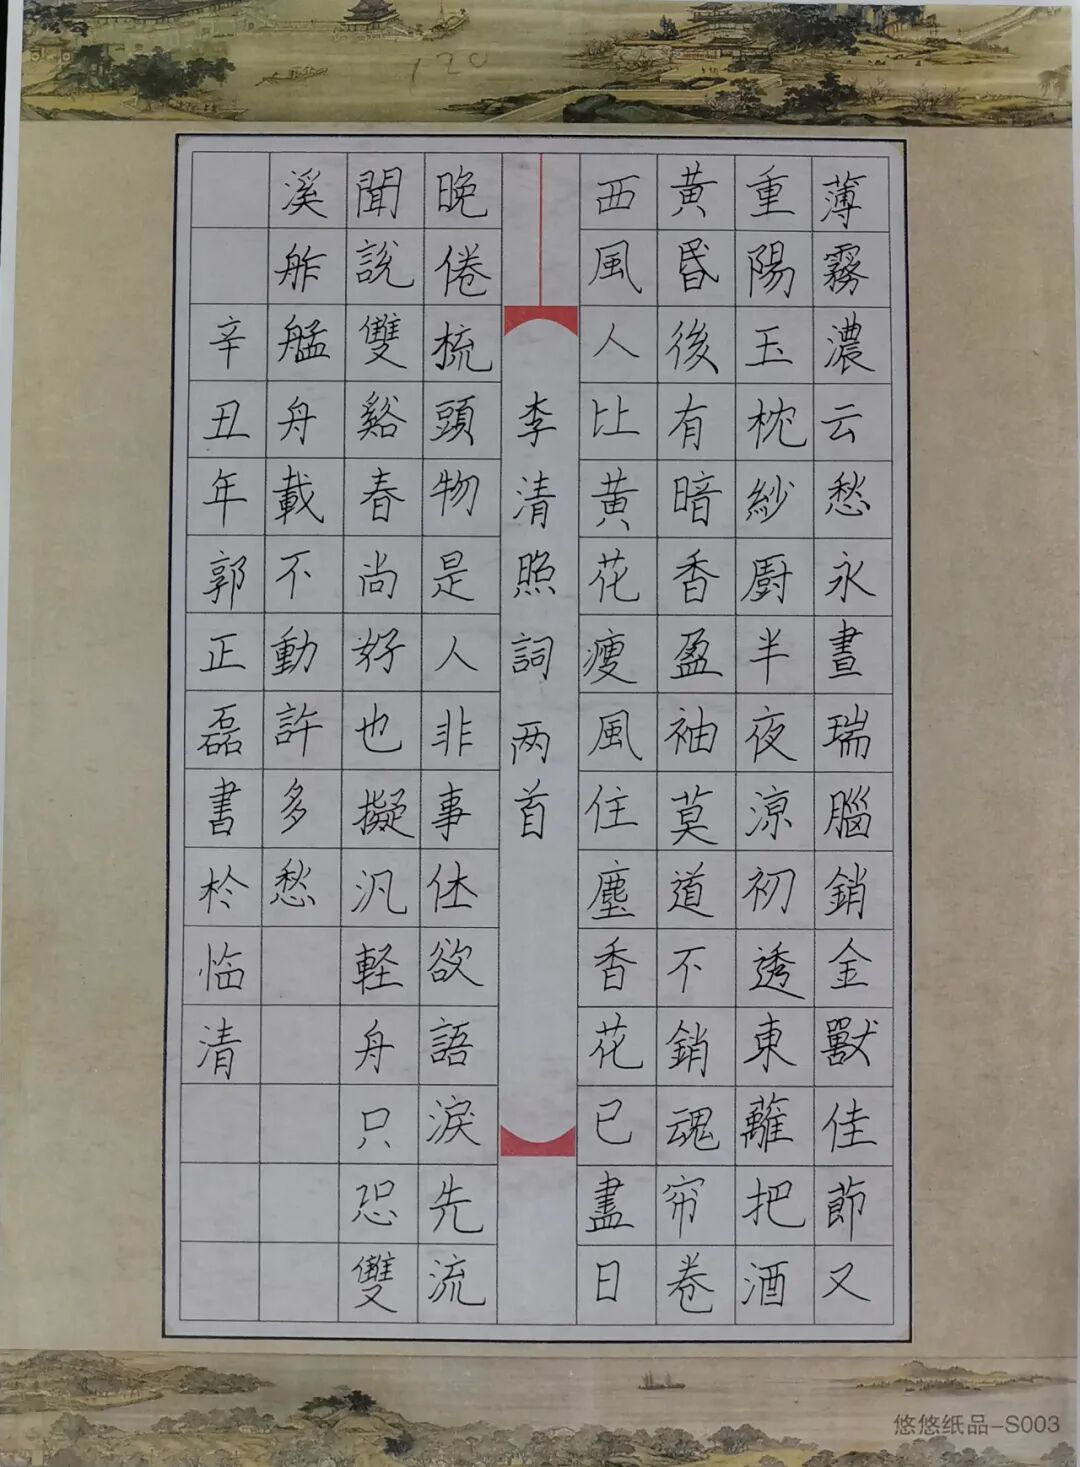 薄霧濃云愁永晝瑞腦銷金獸佳節又
重陽玉枕紗廚半夜涼初透東蘺把酒
黃昏後有暗香盈袖莫道不銷魂帘卷
西風人比黃花瘦風住塵香花已盡日
李清照詞两首
晚倦梳頭物是人非事休欲語淚先流
聞說雙谿春尚好也擬汎軽舟只恐雙
溪舴艋舟載不動許多愁
辛丑年郭正磊書於临清
120
悠悠纸品-S003